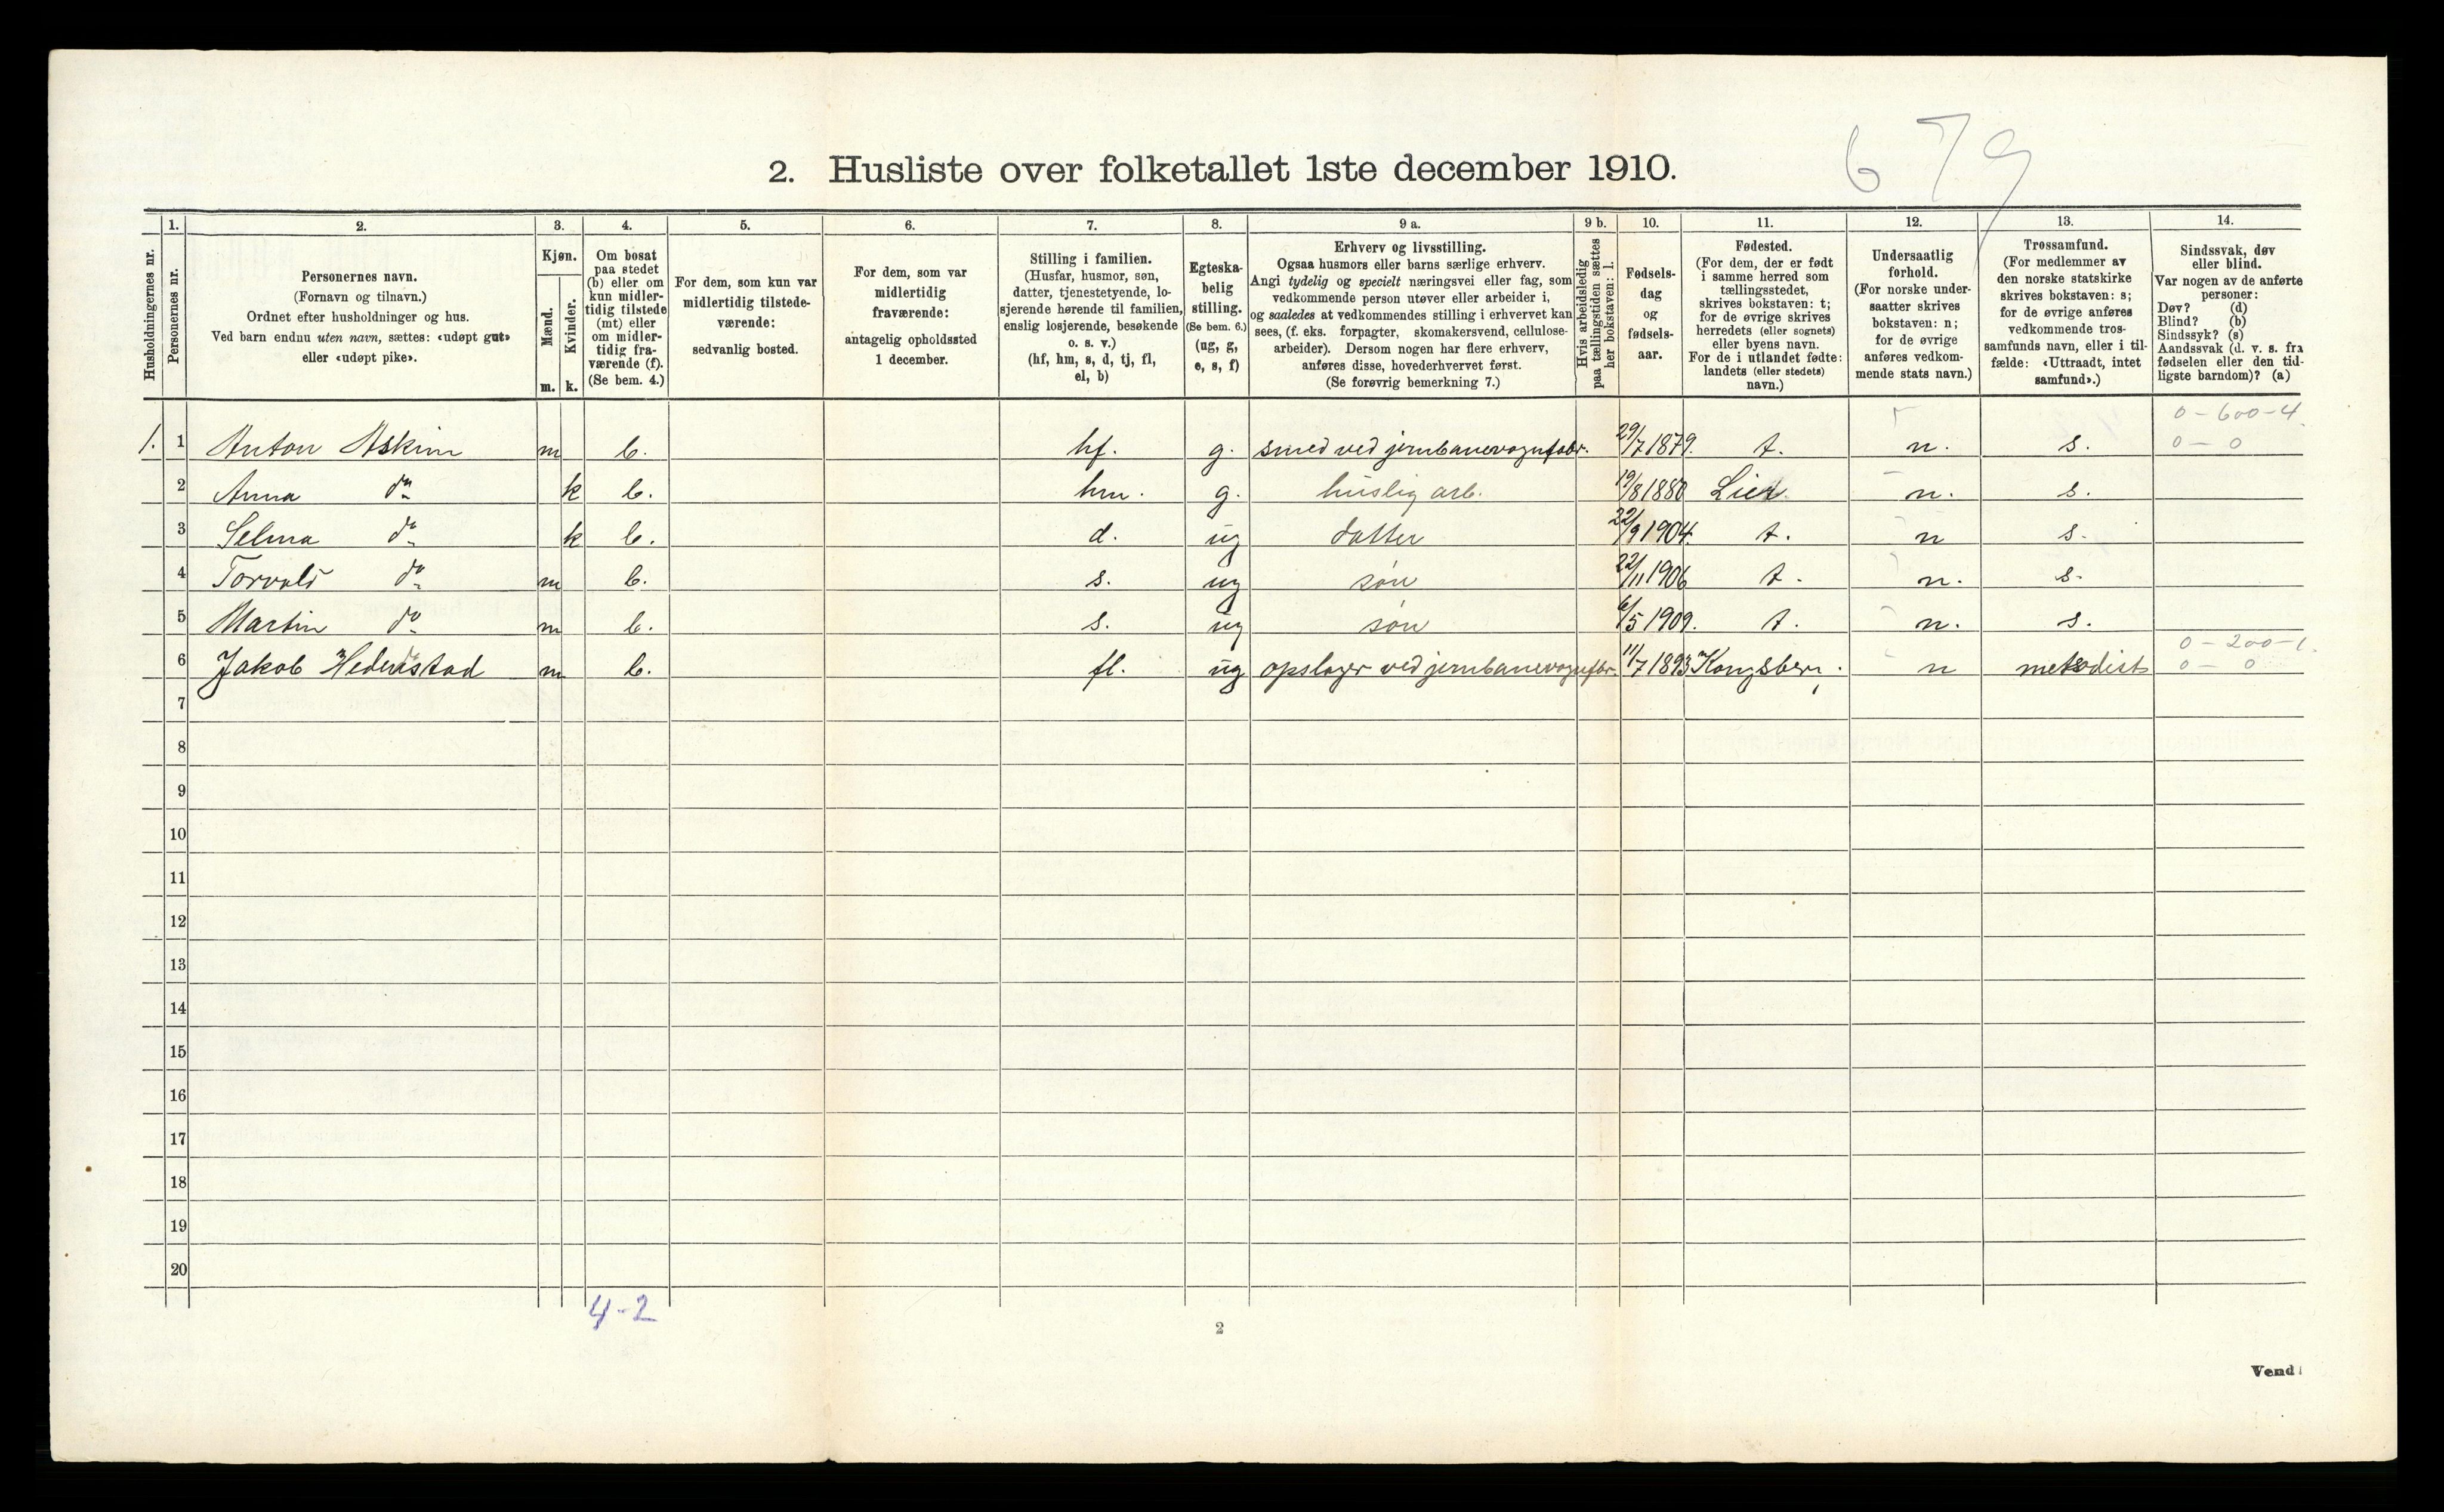 679
2. Husliste over folketallet 1ste december 1910.
Husholdningernes nr.
1. Personernes nr.
2. Personernes navn.
(Fornavn og tilnavn.)
Ordnet efter husholdninger og hus.
Ved barn endnu uten navn, sættes: «udøpt gut»
eller «udøpt pike».
3. Kjøn.
Mænd. m.
Kvinder. k.
4. Om bosat
paa stedet
(b) eller om
kun midler-
tidig tilstede
(mt) eller
om midler-
tidig fra-
værende (f).
(Se bem. 4.)
5. For dem, som kun var
midlertidig tilstede-
værende:
sedvanlig bosted.
6. For dem, som var
midlertidig
fraværende:
antagelig opholdssted
1 december.
7. Stilling i familien.
(Husfar, husmor, søn,
datter, tjenestetyende, lo-
sjerende hørende til familien,
enslig losjerende, besøkende
o. s. v.)
(hf, hm, s, d, tj, fl,
el, b)
8. Egteska-
belig
stilling.
(Se bem. 6.)
(ug, g,
e, s, f)
9 a. Erhverv og livsstilling.
Ogsaa husmors eller barns særlige erhverv.
Angi tydelig og specielt næringsvei eller fag, som
vedkommende person utøver eller arbeider i,
og saaledes at vedkommendes stilling i erhvervet kan
sees, (f. eks. forpagter, skomakersvend, cellulose-
arbeider). Dersom nogen har flere erhverv,
anføres disse, hovederhvervet først.
(Se forøvrig bemerkning 7.)
9 b. Hvis arbeidsledig
paa tællingstiden sættes
her bokstaven: l.
10. Fødsels-
dag
og
fødsels-
aar.
11. Fødested.
(For dem, der er født
i samme herred som
tællingsstedet,
skrives bokstaven: t;
for de øvrige skrives
herredets (eller sognets)
eller byens navn.
For de i utlandet fødte:
landets (eller stedets)
navn.)
12. Undersaatlig
forhold.
(For norske under-
saatter skrives
bokstaven: n;
for de øvrige
anføres vedkom-
mende stats navn.)
13. Trossamfund.
(For medlemmer av
den norske statskirke
skrives bokstaven: s;
for de øvrige anføres
vedkommende tros-
samfunds navn, eller i til-
fælde: «Uttraadt, intet
samfund».)
14. Sindssvak, døv
eller blind.
Var nogen av de anførte
personer:
Døv? (d)
Blind? (b)
Sindssyk? (s)
Aandssvak (d. v. s. fra
fødselen eller den tid-
ligste barndom)? (a)
0-600-4.
1. 1 Anton Askim m b. hf. g. smed ved jernbanevognfabr. 29/7 1879. t. n. s. 0-0
2 Anna do k b. hm. g. huslig arb. 19/8 1880 Lier n. s.
3 Selma do k b. d. ug datter 22/9 1904. t. n s.
4 Torvald do m b. s. ug søn 22/11 1906 t. n. s.
5 Martin do m b. s. ug søn 6/5 1909. t. n. s.
0-200-1.
6 Jakob Hedenstad m b. fl. ug opslager ved jernbanevognfbr. 11/7 1893 Kongsberg. n metodist 0-0
7
8
9
10
11
12
13
14
15
16
17
18
19
20
4-2
2
Vend